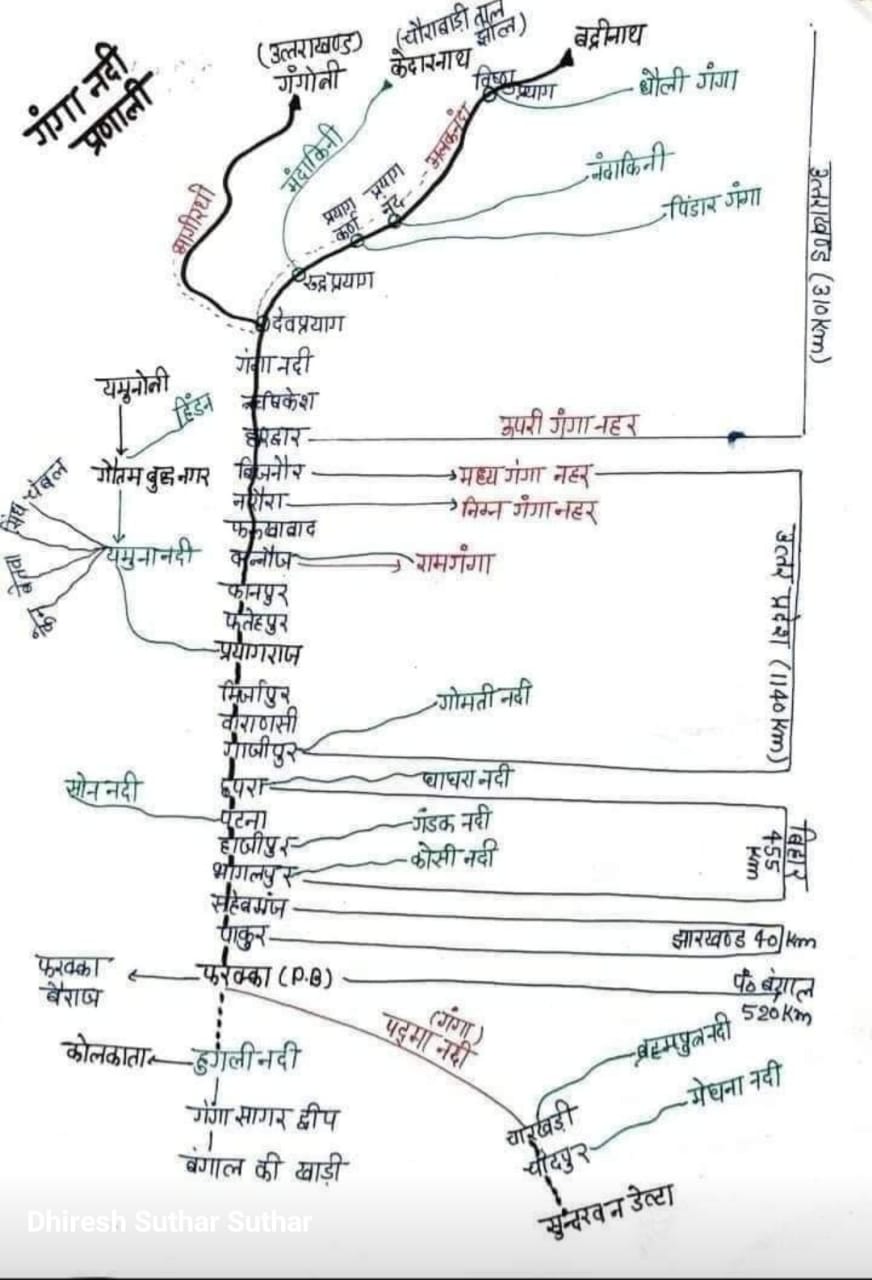 गंगा नदी
प्रणाली
(उत्तराखण्ड)
गंगोत्री
(चौराबाड़ी ताल
झील)
केदारनाथ
बद्रीनाथ
विष्णु
प्रयाग
धौली गंगा
मंदाकिनी
अलकनंदा
नंदाकिनी
पिंडार गंगा
भागीरथी
प्रयाग
कर्ण
प्रयाग
नंद
रुद्र प्रयाग
देवप्रयाग
उत्तराखण्ड (310 Km)
गंगा नदी
ऋषिकेश
हरिद्वार
ऊपरी गंगा नहर
यमुनोत्री
हिंडन
गौतम बुद्ध नगर
बिजनौर
मध्य गंगा नहर
नरौरा
निम्न गंगा नहर
फरुखाबाद
सिंध
चंबल
बेतवा
केन
यमुना नदी
कन्नौज
रामगंगा
कानपुर
फतेहपुर
प्रयागराज
उत्तर प्रदेश (1140 Km)
मिर्जापुर
वाराणसी
गाजीपुर
गोमती नदी
छपरा
घाघरा नदी
सोन नदी
पटना
हाजीपुर
गंडक नदी
भागलपुर
कोसी नदी
बिहार
455
Km
साहेबगंज
पाकुर
झारखण्ड 40 Km
फरक्का
बैराज
फरक्का (P.B)
प० बंगाल
520 Km
(गंगा)
पद्मा नदी
कोलकाता
हुगली नदी
ब्रह्मपुत्र नदी
मेघना नदी
गंगा सागर द्वीप
चारखड़ी
चाँदपुर
बंगाल की खाड़ी
सुन्दरवन डेल्टा
Dhiresh Suthar Suthar